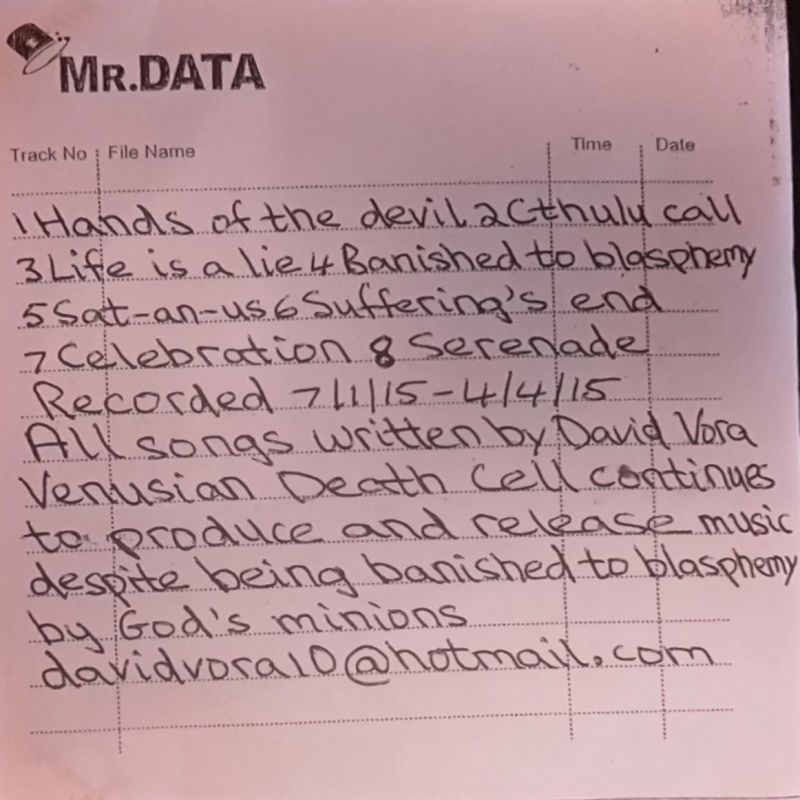 MR.DATA
Track No File Name Time Date
1 Hands of the devil 2 Cthuly call
3 Life is a lie 4 Banished to blasphemy
5 Sat-an-us 6 Suffering's end
7 Celebration 8 Serenade
Recorded 7/1/15-4/4/15
All songs written by David Vora
Venusian Death Cell continues
to produce and release music
despite being banished to blasphemy
by God's minions
davidvora10@hotmail.com